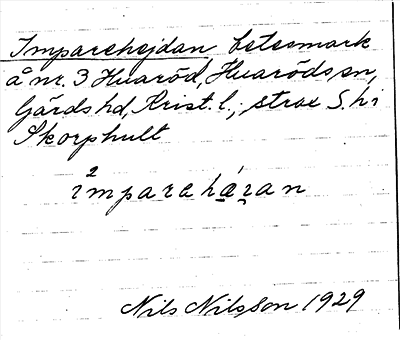 Imparehejdan, betesmark
å nr. 3 Huaröd, Huaröds sn,
Gärds hd, Krist. l., strax S. h i
Skorphult
ı²mparehæɀan
Nils Nilsson 1929